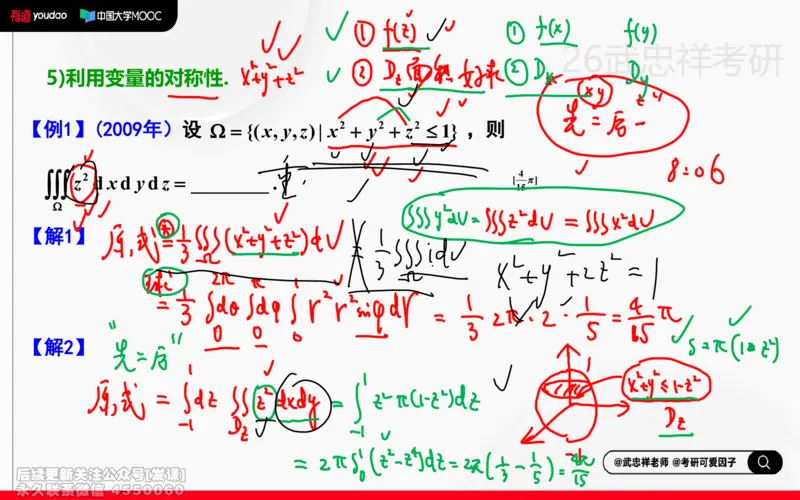 有道 youdao 中国大学MOOC
① f(z)
① f(x) f(y)
26武忠祥考研
5)利用变量的对称性. x²+y²+z²
② Dz 面积好求 ② Dx Dy
xy z
先二后一
【例1】(2009年) 设 Ω={(x,y,z)|x²+y²+z²≤1}，则
8:06
∭_Ω z² dxdydz = ________ .
[4/15 π]
∭y²dV=∭z²dV=∭x²dV
【解1】 原式=1/3∭_Ω(x²+y²+z²)dV
≠ 1/3∭_Ω 1dV
x²+y²+2z²=1
球
=1/3∫₀^{2π}dθ∫₀^π dφ∫₀^1 r² r² sinφ dr = 1/3·2π·2·1/5=4/15π
【解2】 "先二后一"
S=π(1-z²)
原式=∫_{-1}^1 dz∬_{Dz} z² dxdy =∫_{-1}^1 z²π(1-z²)dz
1
x²+y²≤1-z²
Dz
-1
=2π∫₀^1(z²-z⁴)dz=2π(1/3-1/5)=4π/15
@武忠祥老师 @考研可爱因子
后续更新关注公众号[发课]
永久联系微信 4550060